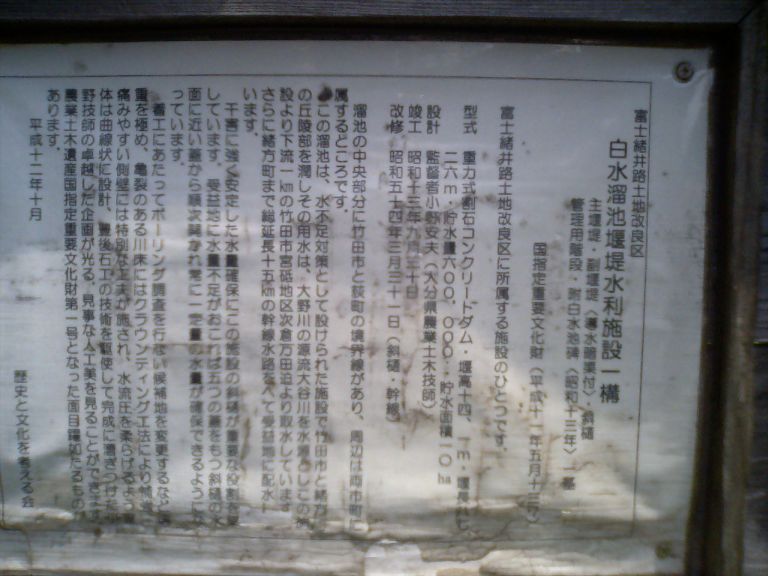 富士緒井路土地改良区
白水溜池堰堤水利施設一構
主堰堤・副堰堤〈導水暗渠付〉・斜樋
管理用階段・附白水池碑〈昭和十三年〉一基
国指定重要文化財〈平成十一年五月十三
富士緒井路土地改良区に所属する施設のひとつです。
型式 重力式割石コンクリートダム・堰高十四、一m・堰長八七、
二六m・貯水量六〇〇、〇〇〇・貯水面積一〇ha
設計 監督者小野安夫(大分県農業土木技師)
竣工 昭和十三年 月三十日
改修 昭和五十四年三月三十一日(斜樋・幹線)
溜池の中央部分に竹田市と荻町の境界線があり、周辺は両市町に
属するところです。
この溜池は、水不足対策として設けられた施設で竹田市と緒方
の丘陵部を潤しその用水は、大野川の源流大谷川を水源としこの施
設より下流一kmの竹田市宮砥地区次倉万田迫より取水しています
さらに緒方町まで総延長十五kmの幹線水路をへて受益地に配水し
います。
干害に強く安定した水量確保にこの施設の斜樋が重要な役割を
しています。受益地に水量不足がおこれば五つの蓋をもつ斜樋の水
面に近い蓋から順次開かれ常に一定量の水量が確保できるように
っています。
着工にあたってボーリング調査を行ない候補地を変更するなど
重を極め、亀裂のある川床にはグラウンティング工法により補
痛みやすい側壁には特別な工夫が施され、水流圧を柔らげるよう
体は曲線状に設計、豊後石工の技術を駆使して完成に漕ぎつけた
野技師の卓越した企画が光る。見事な人工美を見ることができます
農業土木遺産国指定重要文化財第一号となった面目躍如たるもの
あります。
平成十二年十月
歴史と文化を考える会